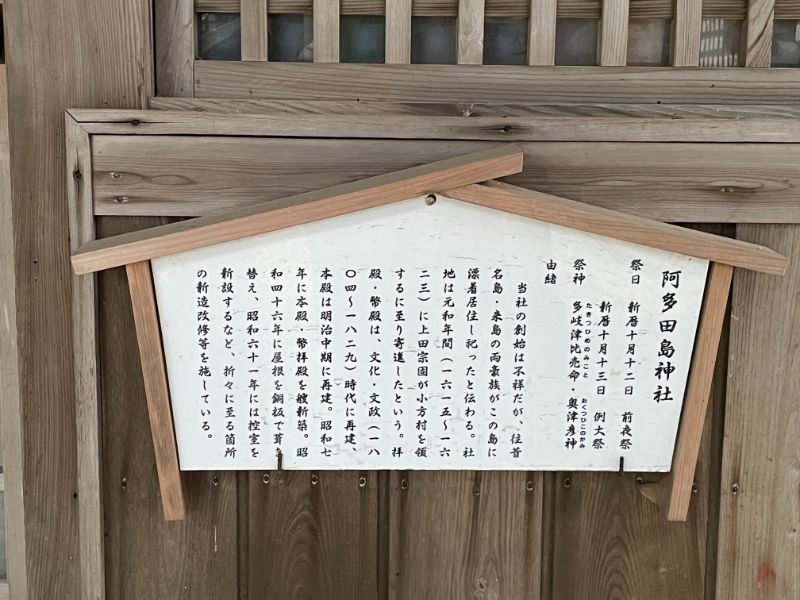 阿多田島神社
祭日　新暦十月十二日　前夜祭
新暦十月十三日　例大祭
祭神　多岐津比売命・奥津彦神
たきつひめのみこと　おくつひこのかみ
由緒
当社の創始は不祥だが、往昔
名島・来島の両豪族がこの島に
漂着居住し祀ったと伝わる。社
地は元和年間（一六一五〜一六
二三）に上田宗固が小方村を領
するに至り寄進したという。拝
殿・幣殿は、文化・文政（一八
〇四〜一八二九）時代に再建、
本殿は明治中期に再建。昭和七
年に本殿・幣拝殿を艘新築。昭
和四十六年に屋根を銅板で葺
替え、昭和六十一年には控室を
新設するなど、折々に至る箇所
の新造改修等を施している。